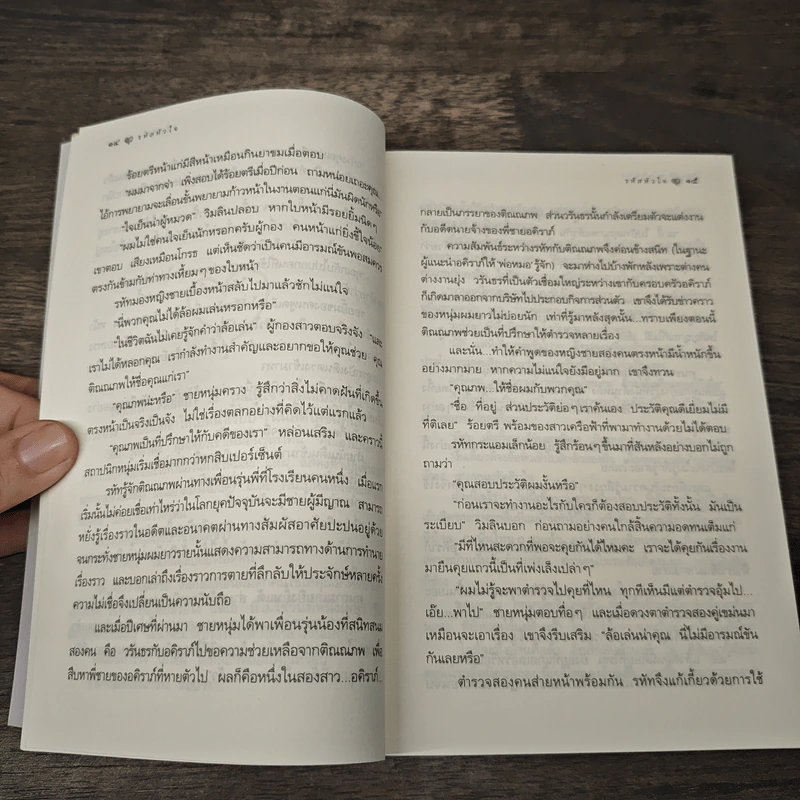 ๑๔ รหัสหัวใจ
ร้อยตรีหน้าแก่มีสีหน้าเหมือนกินยาขมเมื่อตอบ
"ผมมาจากจ่า เพิ่งสอบได้ร้อยตรีเมื่อปีก่อน ถามหน่อยเถอะคุณ
ไอ้การพยายามจะเลื่อนขั้นพยายามก้าวหน้าในงานตอนแก่นี่มันผิดนักหรือ"
"ใจเย็นน่าผู้หมวด" วิมลินปลอบ หากใบหน้ามีรอยยิ้มนิดๆ
"ผมไม่ใช่คนใจเย็นนักหรอกครับผู้กอง คนหน้าแก่ยิ่งขี้ใจน้อย"
เขาตอบ เสียงเหมือนโกรธ แต่เห็นชัดว่าเป็นคนมีอารมณ์ขันพอสมควร
ตรงกันข้ามกับท่าทางเหี้ยมๆ ของใบหน้า
รหัทมองหญิงชายเบื้องหน้าสลับไปมาแล้วชักไม่แน่ใจ
"นี่พวกคุณไม่ได้ล้อผมเล่นหรอกหรือ"
"ในชีวิตฉันไม่เคยรู้จักคำว่าล้อเล่น" ผู้กองสาวตอบจริงจัง "และ
เราไม่ได้หลอกคุณ เรากำลังทำงานสำคัญและอยากขอให้คุณช่วย คุณ
ติณณภพให้ชื่อคุณแก่เรา"
"คุณภพน่ะหรือ" ชายหนุ่มคราง รู้สึกว่าสิ่งไม่คาดฝันที่เกิดขึ้น
ตรงหน้าเป็นจริงเป็นจัง ไม่ใช่เรื่องตลกอย่างที่คิดไว้แต่แรกแล้ว
"คุณภพเป็นที่ปรึกษาให้กับคดีของเรา" หล่อนเสริม และคราวนี้
สถาปนิกหนุ่มเริ่มเชื่อมากกว่าหกสิบเปอร์เซ็นต์
รหัทรู้จักติณณภพผ่านทางเพื่อนรุ่นพี่ที่โรงเรียนคนหนึ่ง เมื่อแรก
เริ่มนั้นไม่ค่อยเชื่อเท่าไหร่ว่าในโลกยุคปัจจุบันจะมีชายผู้มีญาณ สามารถ
หยั่งรู้เรื่องราวในอดีตและอนาคตผ่านทางสัมผัสอาศัยปะปนอยู่ด้วย
จนกระทั่งชายหนุ่มผมยาวรายนั้นแสดงความสามารถทางด้านการทำนาย
เรื่องราว และบอกเล่าถึงเรื่องราวการตายที่ลึกลับให้ประจักษ์หลายครั้ง
ความไม่เชื่อจึงเปลี่ยนเป็นความนับถือ
และเมื่อปีเศษที่ผ่านมา ชายหนุ่มได้พาเพื่อนรุ่นน้องที่สนิทสนม
สองคน คือ วรันธรกับอคิราภ์ไปขอความช่วยเหลือจากติณณภพ เพื่อ
สืบหาพี่ชายของอคิราภ์ที่หายตัวไป ผลก็คือหนึ่งในสองสาว...อคิราภ์...
รหัสหัวใจ ๑๕
กลายเป็นภรรยาของติณณภพ ส่วนวรันธรนั้นกำลังเตรียมตัวจะแต่งงาน
กับอดีตนายจ้างของพี่ชายอคิราภ์
ความสัมพันธ์ระหว่างรหัทกับติณณภพจึงค่อนข้างสนิท (ในฐานะ
ผู้แนะนำอคิราภ์ให้ 'พ่อหมอ' รู้จัก) จะมาห่างไปบ้างพักหลังเพราะต่างคน
ต่างงานยุ่ง วรันธรที่เป็นตัวเชื่อมใหญ่ระหว่างเขากับครอบครัวอคิราภ์
ก็เกิดมาลาออกจากบริษัทไปประกอบกิจการส่วนตัว เขาจึงได้รับข่าวคราว
ของหนุ่มผมยาวไม่บ่อยนัก เท่าที่รู้มาหลังสุดนั้น...ทราบเพียงตอนนี้
ติณณภพช่วยเป็นที่ปรึกษาให้ตำรวจหลายเรื่อง
และนั่น...ทำให้คำพูดของหญิงชายสองคนตรงหน้ามีน้ำหนักขึ้น
อย่างมากมาย หากความไม่แน่ใจยังมีอยู่มาก เขาจึงทวน
"คุณภพ...ให้ชื่อผมกับพวกคุณ"
"ชื่อ ที่อยู่ ส่วนประวัติย่อๆ เราค้นเอง ประวัติคุณดีเยี่ยมไม่มี
ที่ติเลย" ร้อยตรี พร้อมของสาวเครือฟ้าที่พามาทำงานด้วยไม่ได้ตอบ
รหัทกระแอมเล็กน้อย รู้สึกร้อนๆ ขึ้นมาที่สันหลังอย่างบอกไม่ถูก
ถามว่า
"คุณสอบประวัติผมงั้นหรือ"
"ก่อนเราจะทำงานอะไรกับใครก็ต้องสอบประวัติทั้งนั้น มันเป็น
ระเบียบ" วิมลินบอก ก่อนถามอย่างคนใกล้สิ้นความอดทนเต็มแก่
"มีที่ไหนสะดวกที่พอจะคุยกันได้ไหมคะ เราจะได้คุยกันเรื่องงาน
มายืนคุยแถวนี้เป็นที่เพ่งเล็งเปล่าๆ"
"ผมไม่รู้จะพาตำรวจไปคุยที่ไหน ทุกที่เห็นมีแต่ตำรวจอุ้มไป...
เอ๊ย...พาไป" ชายหนุ่มตอบทื่อๆ และเมื่อดวงตาตำรวจสองคู่เขม่นมา
เหมือนจะเอาเรื่อง เขาจึงรีบเสริม "ล้อเล่นน่าคุณ นี่ไม่มีอารมณ์ขัน
กันเลยหรือ"
ตำรวจสองคนส่ายหน้าพร้อมกัน รหัทจึงแก้เกี้ยวด้วยการใช้